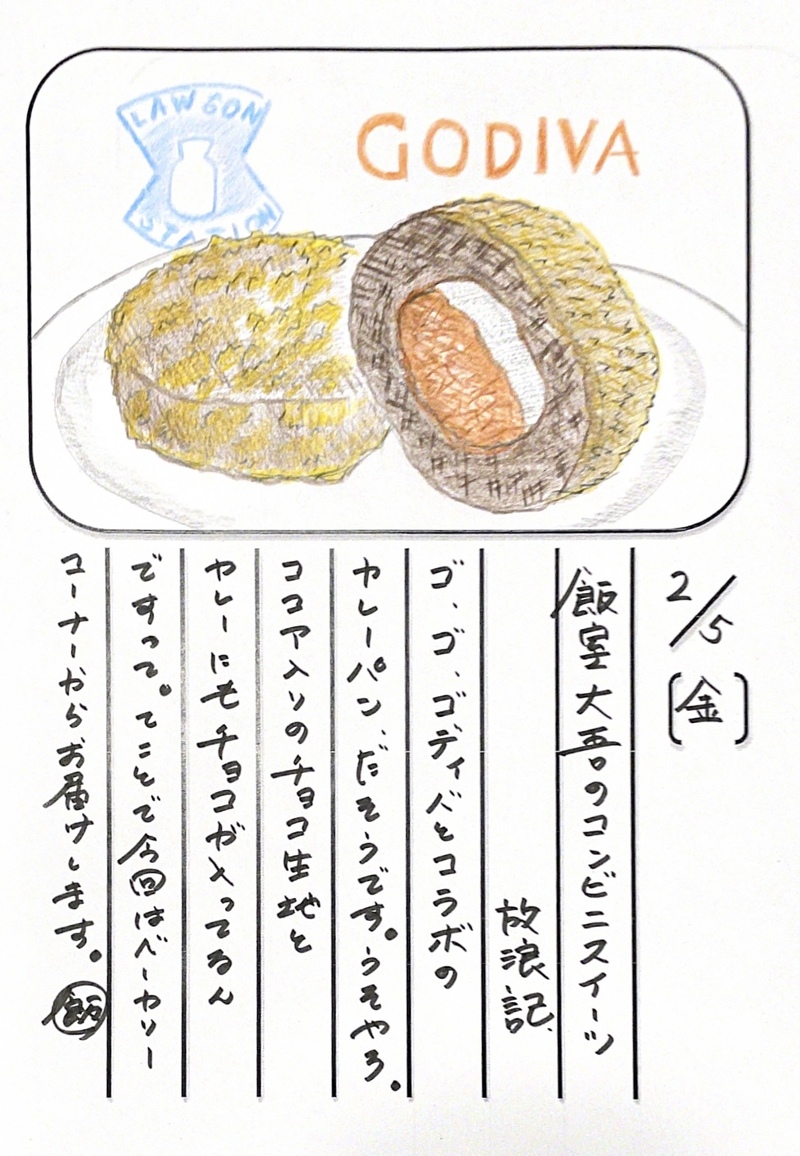 LAWSON
STATION
GODIVA
2/5
[金]
飯室大吾のコンビニスイーツ
放浪記
ゴ、ゴ、ゴディバとコラボの
カレーパン、だそうです。うそやろ。
ココア入りのチョコ生地と
カレーにもチョコが入ってるん
ですって。てことで今回はベーカリー
コーナーからお届けします。
飯